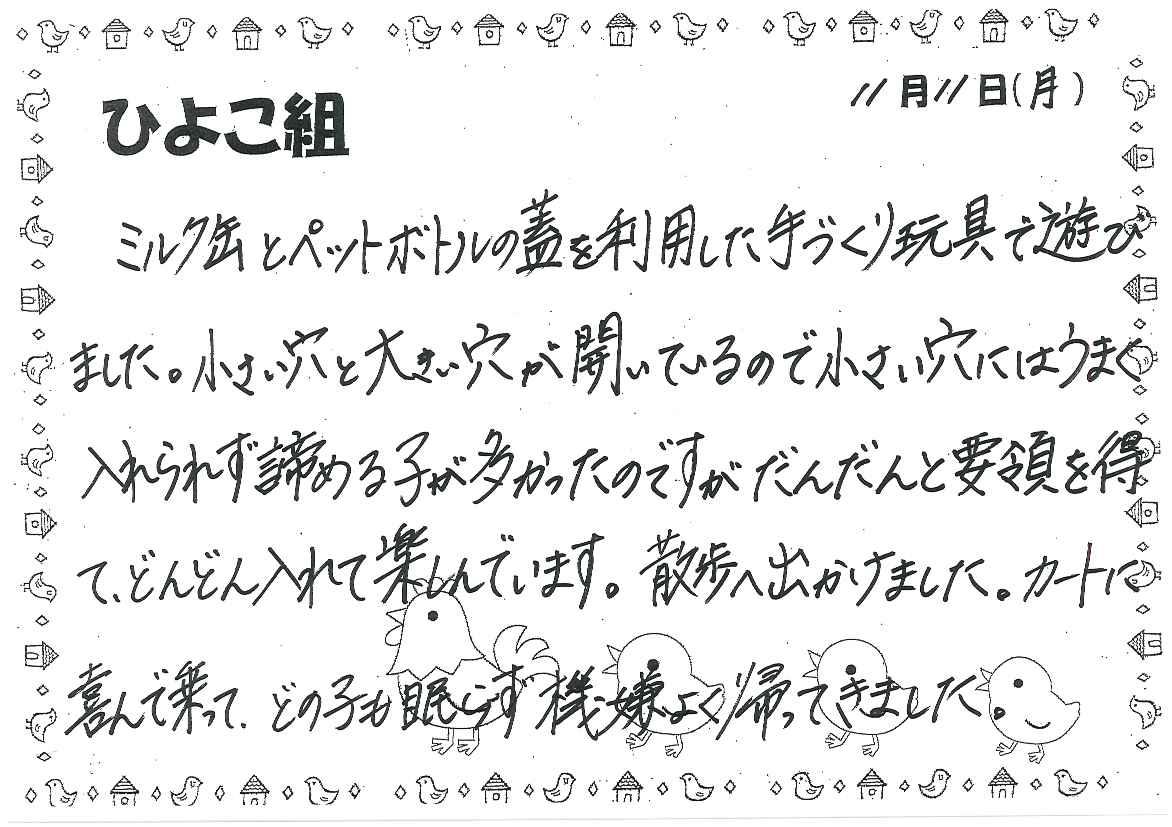 ひよこ組
11月11日(月)
ミルク缶とペットボトルの蓋を利用した手づくり玩具で遊び
ました。小さい穴と大きい穴が開いているので小さい穴にはうまく
入れられず諦める子が多かったのですがだんだんと要領を得
て、どんどん入れて楽しんでいます。散歩へ出かけました。カートに
喜んで乗って、どの子も眠らず機嫌よく帰ってきました。